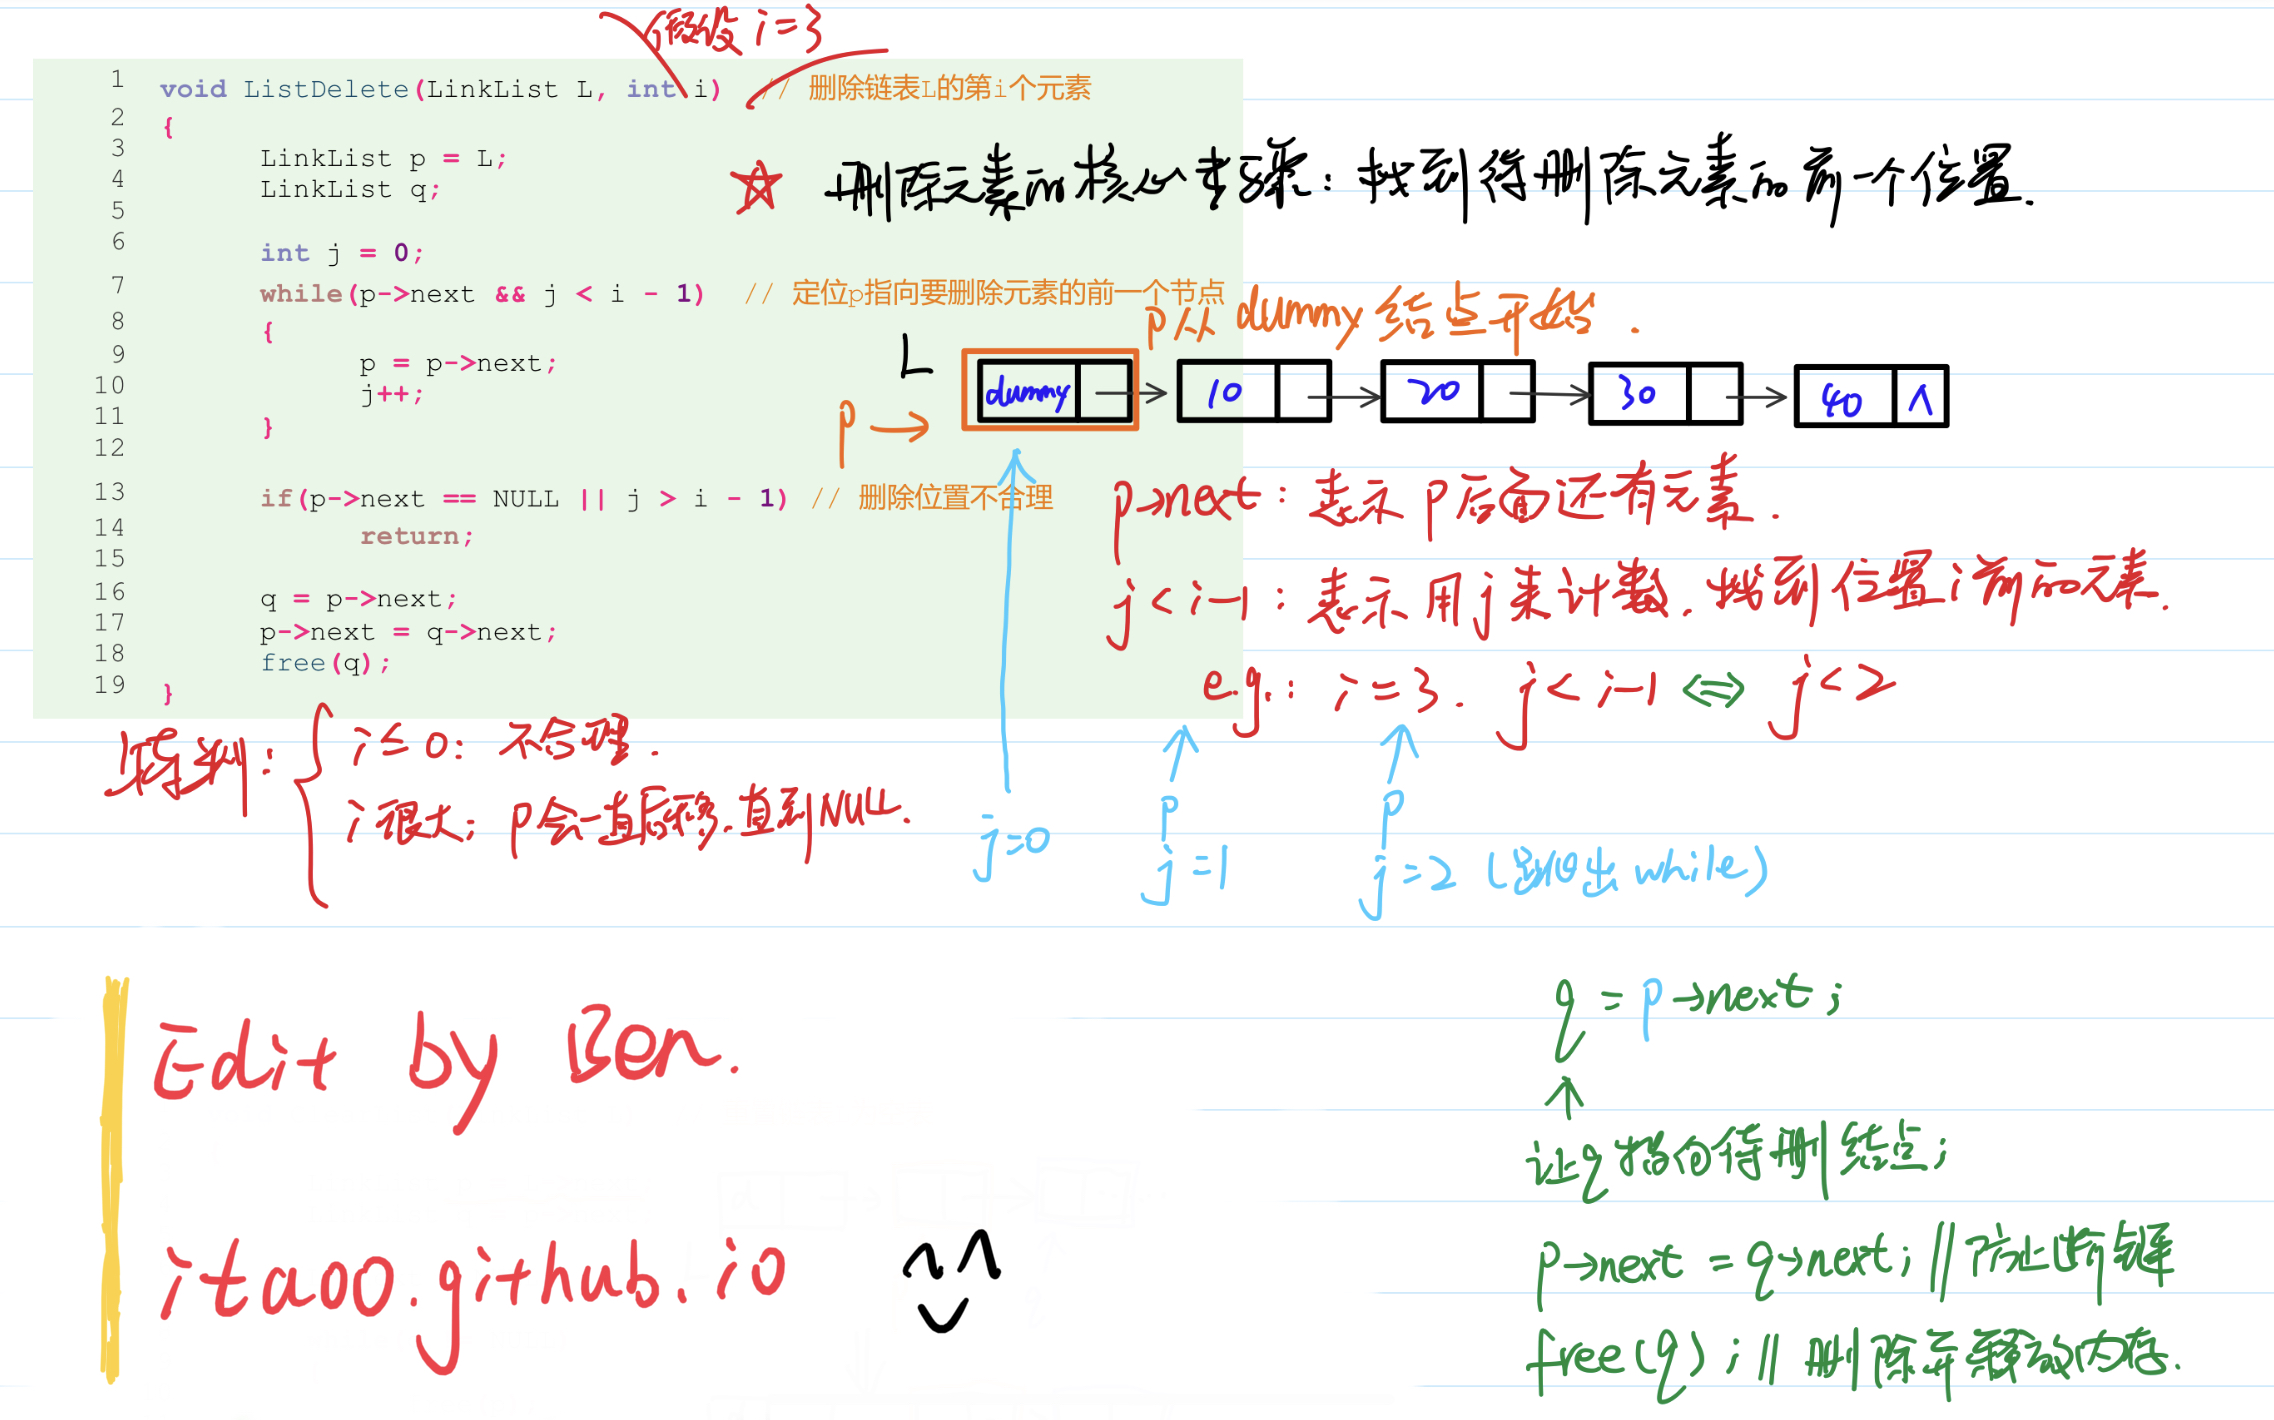 假设 i=3
1 void ListDelete(LinkList L, int i) // 删除链表L的第i个元素
2 {
3 LinkList p = L;
4 LinkList q;
5
6 int j = 0;
7 while(p->next && j < i - 1) // 定位p指向要删除元素的前一个节点
8 {
9 p = p->next;
10 j++;
11 }
12
13 if(p->next == NULL || j > i - 1) // 删除位置不合理
14 return;
15
16 q = p->next;
17 p->next = q->next;
18 free(q);
19 }
删除元素的核心步骤：找到待删除元素的前一个位置.
p从dummy结点开始.
L
p→
dummy 10 20 30 40 ∧
p→next：表示p后面还有元素.
j<i-1：表示用j来计数.找到位置i前的元素.
e.g.: i=3. j<i-1 ⇔ j<2
特判：
i≤0：不合理.
i很大；p会一直后移.直到NULL.
j=0
p
j=1
p
j=2 (跳出while)
Edit by Ben.
itaoo.github.io
q = p→next;
让q指向待删结点;
p→next = q→next; // 防止断链
free(q); // 删除并释放内存.